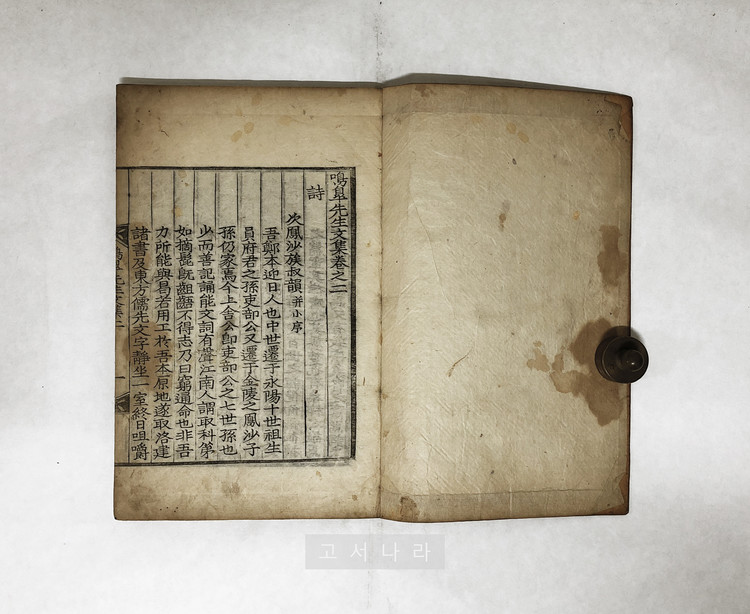 鳴臯先生文集卷之二
詩
次鳳沙族叔韻 幷小序
吾鄭本迎日人也中世遷于永陽十世祖生
員府君之孫吏部公又遷于金陵之鳳沙子
孫仍家焉今上舍公卽吏部公之七世孫也
少而善記誦能文詞有聲江南人謂取科第
如摘髭旣齟齬不得志乃曰窮通命也非吾
力所能與曷若用工於吾本原地遂取洛建
諸書及東方儒先文字靜坐一室終日咀嚼
고서나라